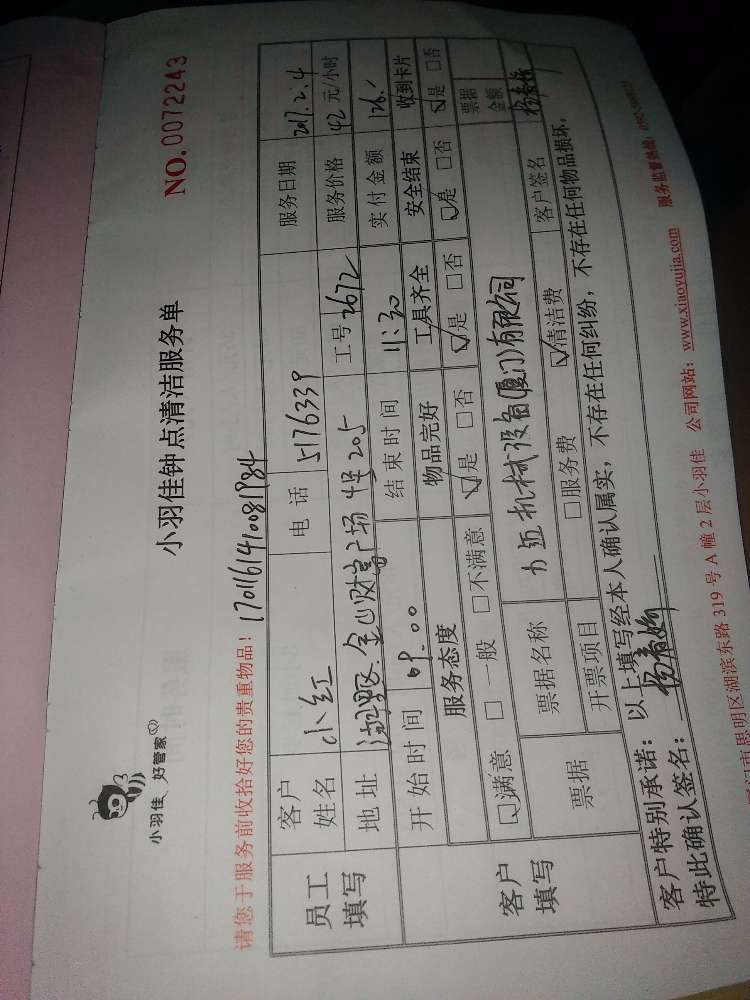 小羽佳 好管家
小羽佳钟点清洁服务单
NO.0072243
请您于服务前收拾好您的贵重物品！ 1701161410081984
员工填写
客户姓名 小红 电话 5176339 服务日期 2017.2.4
地址 湖里区.金山财富广场4号205 工号 2672 服务价格 42 元/小时
开始时间 09:00 结束时间 11:30 实付金额 126.
客户填写
服务态度 物品完好 工具齐全 安全结束 收到卡片
满意 一般 不满意 是 否 是 否 是 否 是 否
票据 票据名称 机械设备(厦门)有限公司 票据金额
开票项目 服务费 清洁费 客户签名
客户特别承诺： 以上填写经本人确认属实，不存在任何纠纷，不存在任何物品损坏。
特此确认签名：
市思明区湖滨东路 319 号 A 幢 2 层小羽佳 公司网站：www.xiaoyujia.com 服务监督热线：